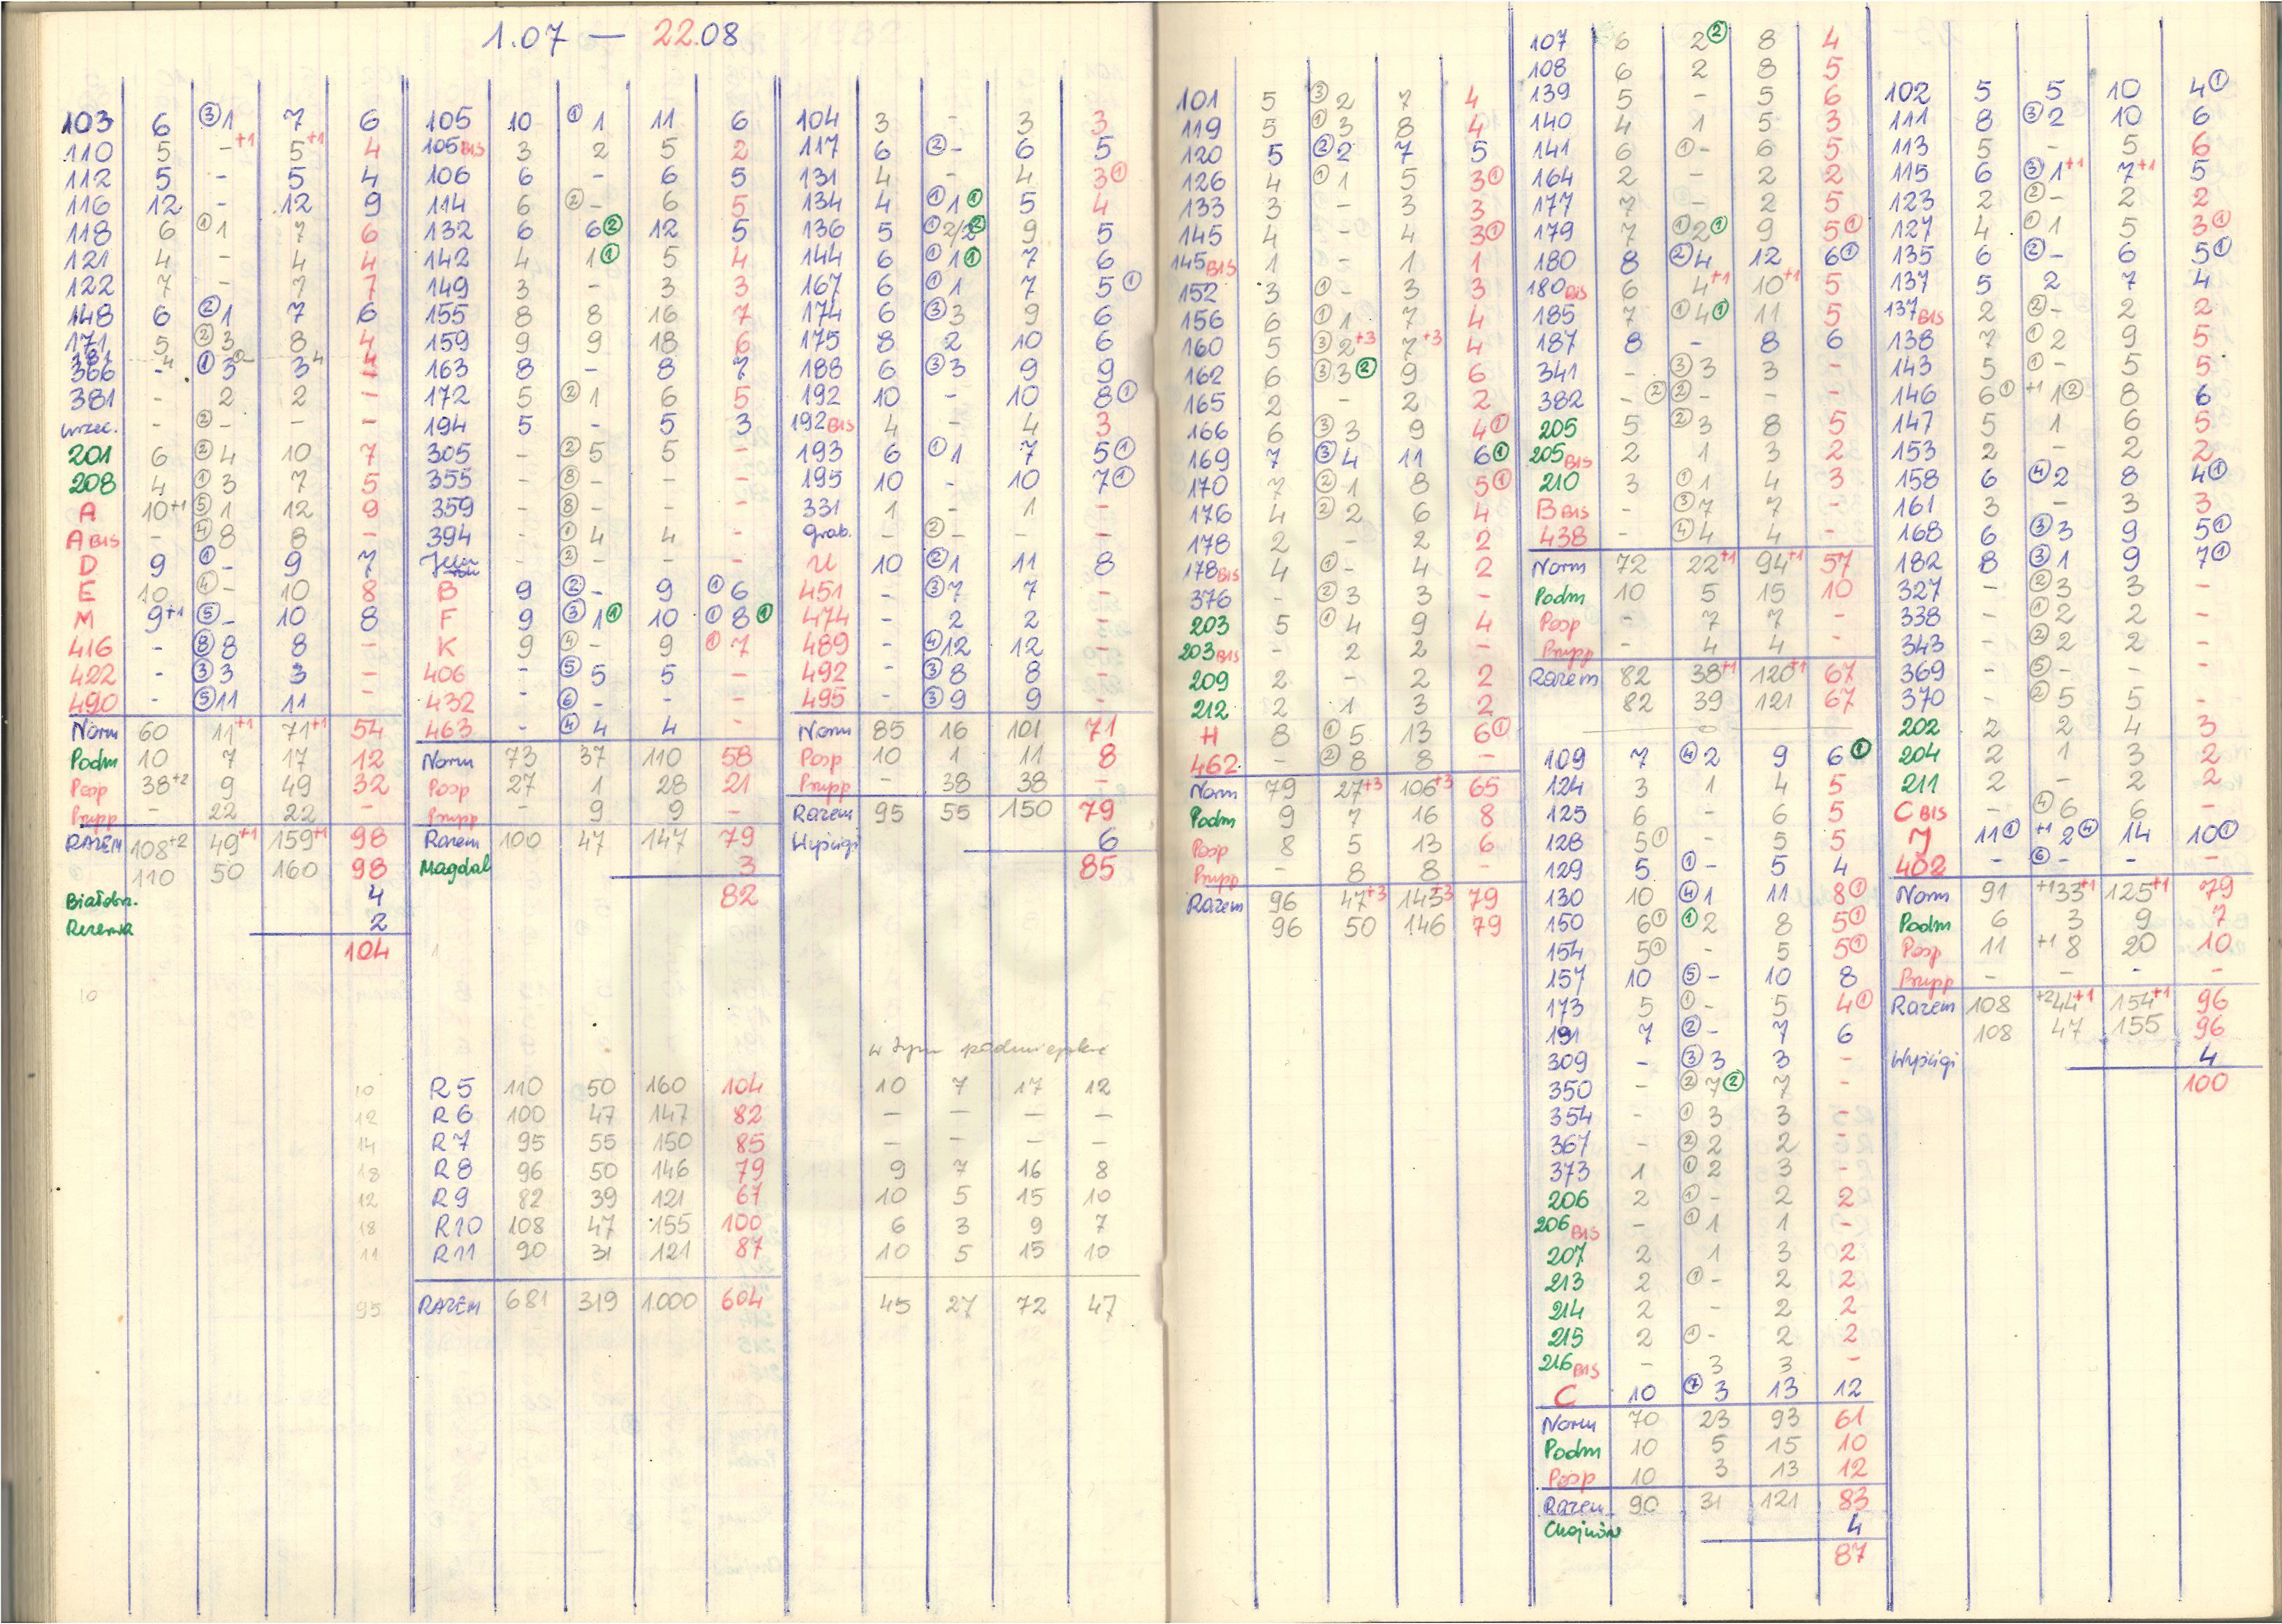 1.07 — 22.08
103 6 ③1 7 6
110 5 -+1 5+1 4
112 5 - 5 4
116 12 - 12 9
118 6 ①1 7 6
121 4 - 4 4
122 7 - 7 7
148 6 ②1 7 6
171 5 ②3 8 4
381 4 4
366 - ①3 3 -
381 - 2 2 -
wrzec. - ②- - -
201 6 ②4 10 7
208 4 ①3 7 5
A 10+1 ⑤1 12 9
A BIS - ④8 8 -
D 9 ①- 9 7
E 10 ④- 10 8
M 9+1 ⑤- 10 8
416 - ⑧8 8 -
422 - ③3 3 -
490 - ⑤11 11 -
Norm 60 11+1 71+1 54
Podm 10 7 17 12
Posp 38+2 9 49 32
Prupp - 22 22 -
RAZEM 108+2 49+1 159+1 98
110 50 160 98
Białobrz. 4
Rezerwa 2
104
10
105 10 ①1 11 6
105 BIS 3 2 5 2
106 6 - 6 5
114 6 ②- 6 5
132 6 6② 12 5
142 4 1① 5 4
149 3 - 3 3
155 8 8 16 7
159 9 9 18 6
163 8 - 8 7
172 5 ②1 6 5
194 5 - 5 3
305 - ②5 5 -
355 - ⑧- - -
359 - ⑧- - -
394 - ①4 4 -
- ②- - -
B 9 ②- 9 ①6
F 9 ③1① 10 ①8①
K 9 ④- 9 ①7
406 - ⑤5 5 -
432 - ⑥- - -
463 - ④4 4 -
Norm 73 37 110 58
Posp 27 1 28 21
Prupp - 9 9 -
Razem 100 47 147 79
Magdal 3
82
104 3 - 3 3
117 6 ②- 6 5
131 4 - 4 3①
134 4 ①1① 5 4
136 5 ①2/2② 9 5
144 6 ①1① 7 6
167 6 ①1 7 5①
174 6 ③3 9 6
175 8 2 10 6
188 6 ③3 9 9
192 10 - 10 8①
192 BIS 4 - 4 3
193 6 ①1 7 5①
195 10 - 10 7①
331 1 - 1 -
Grab. - ②- - -
U 10 ②1 11 8
451 - ③7 7 -
474 - 2 2 -
489 - ④12 12 -
492 - ③8 8 -
495 - ③9 9 -
Norm 85 16 101 71
Posp 10 1 11 8
Prupp - 38 38 -
Razem 95 55 150 79
Wyścigi 6
85
w tym podmiejskie
10 R5 110 50 160 104 10 7 17 12
12 R6 100 47 147 82 - - - -
14 R7 95 55 150 85 - - - -
18 R8 96 50 146 79 9 7 16 8
12 R9 82 39 121 67 10 5 15 10
18 R10 108 47 155 100 6 3 9 7
11 R11 90 31 121 87 10 5 15 10
95 RAZEM 681 319 1.000 604 45 27 72 47
101 5 ③2 7 4
119 5 ①3 8 4
120 5 ②2 7 5
126 4 ①1 5 3①
133 3 - 3 3
145 4 - 4 3①
145 BIS 1 - 1 1
152 3 ①- 3 3
156 6 ①1 7 4
160 5 ③2+3 7+3 4
162 6 ③3② 9 6
165 2 - 2 2
166 6 ③3 9 4①
169 7 ③4 11 6①
170 7 ②1 8 5①
176 4 ②2 6 4
178 2 - 2 2
178 BIS 4 ①- 4 2
376 - ②3 3 -
203 5 ①4 9 4
203 BIS - 2 2 -
209 2 - 2 2
212 2 1 3 2
H 8 ①5 13 6①
462 - ②8 8 -
Norm 79 27+3 106+3 65
Podm 9 7 16 8
Posp 8 5 13 6
Prupp - 8 8 -
Razem 96 47+3 143+3 79
96 50 146 79
107 6 2② 8 4
108 6 2 8 5
139 5 - 5 6
140 4 1 5 3
141 6 ①- 6 5
164 2 - 2 2
177 7 - 2 5
179 7 ①2① 9 5①
180 8 ②4 12 6①
180 BIS 6 4+1 10+1 5
185 7 ①4① 11 5
187 8 - 8 6
341 - ③3 3 -
382 - ②②- - -
205 5 ②3 8 5
205 BIS 2 1 3 2
210 3 ①1 4 3
B BIS - ③7 7 -
438 - ④4 4 -
Norm 72 22+1 94+1 57
Podm 10 5 15 10
Posp - 7 7 -
Prupp - 4 4 -
Razem 82 38+1 120+1 67
82 39 121 67
109 7 ④2 9 6①
124 3 1 4 5
125 6 - 6 5
128 5① - 5 5
129 5 ①- 5 4
130 10 ④1 11 8①
150 6① ①2 8 5①
154 5① - 5 5①
157 10 ⑤- 10 8
173 5 ①- 5 4①
191 7 ②- 7 6
309 - ③3 3 -
350 - ②7② 7 -
354 - ①3 3 -
367 - ②2 2 -
373 1 ①2 3 -
206 2 ①- 2 2
206 BIS - ①1 1 -
207 2 1 3 2
213 2 ①- 2 2
214 2 - 2 2
215 2 ①- 2 2
216 BIS - 3 3 -
C 10 ⑦3 13 12
Norm 70 23 93 61
Podm 10 5 15 10
Posp 10 3 13 12
Razem 90 31 121 83
Chojnów 4
87
102 5 5 10 4①
111 8 ③2 10 6
113 5 - 5 6
115 6 ③1+1 7+1 5
123 2 ②- 2 2
127 4 ①1 5 3①
135 6 ②- 6 5①
137 5 2 7 4
137 BIS 2 ②- 2 2
138 7 ①2 9 5
143 5 ①- 5 5
146 6① +1 1② 8 6
147 5 1 6 5
153 2 - 2 2
158 6 ④2 8 4①
161 3 - 3 3
168 6 ③3 9 5①
182 8 ③1 9 7①
327 - ②3 3 -
338 - ①2 2 -
343 - ②2 2 -
369 - ⑤- - -
370 - ②5 5 -
202 2 2 4 3
204 2 1 3 2
211 2 - 2 2
C BIS - ④6 6 -
J 11① +1 2④ 14 10①
402 - ⑥- - -
Norm 91 +1 33+1 125+1 79
Podm 6 3 9 7
Posp 11 +1 8 20 10
Prupp - - - -
Razem 108 +2 44+1 154+1 96
108 47 155 96
Wyścigi 4
100